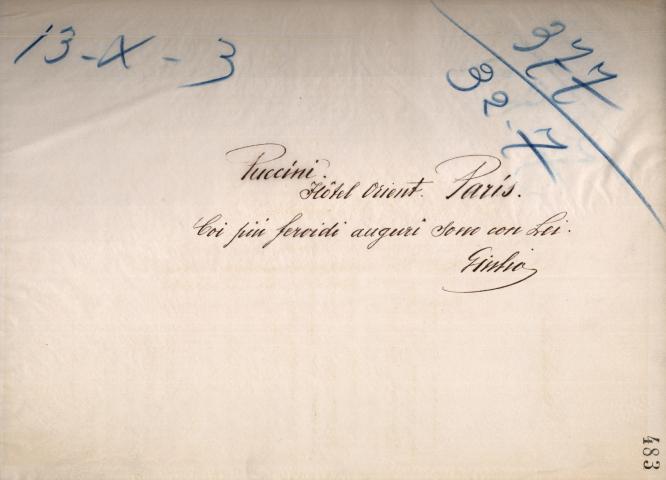 13-X-3
377
32-7
Puccini.
Hôtel Orient. Paris.
Coi più fervidi auguri sono con Lei.
Giulio
483